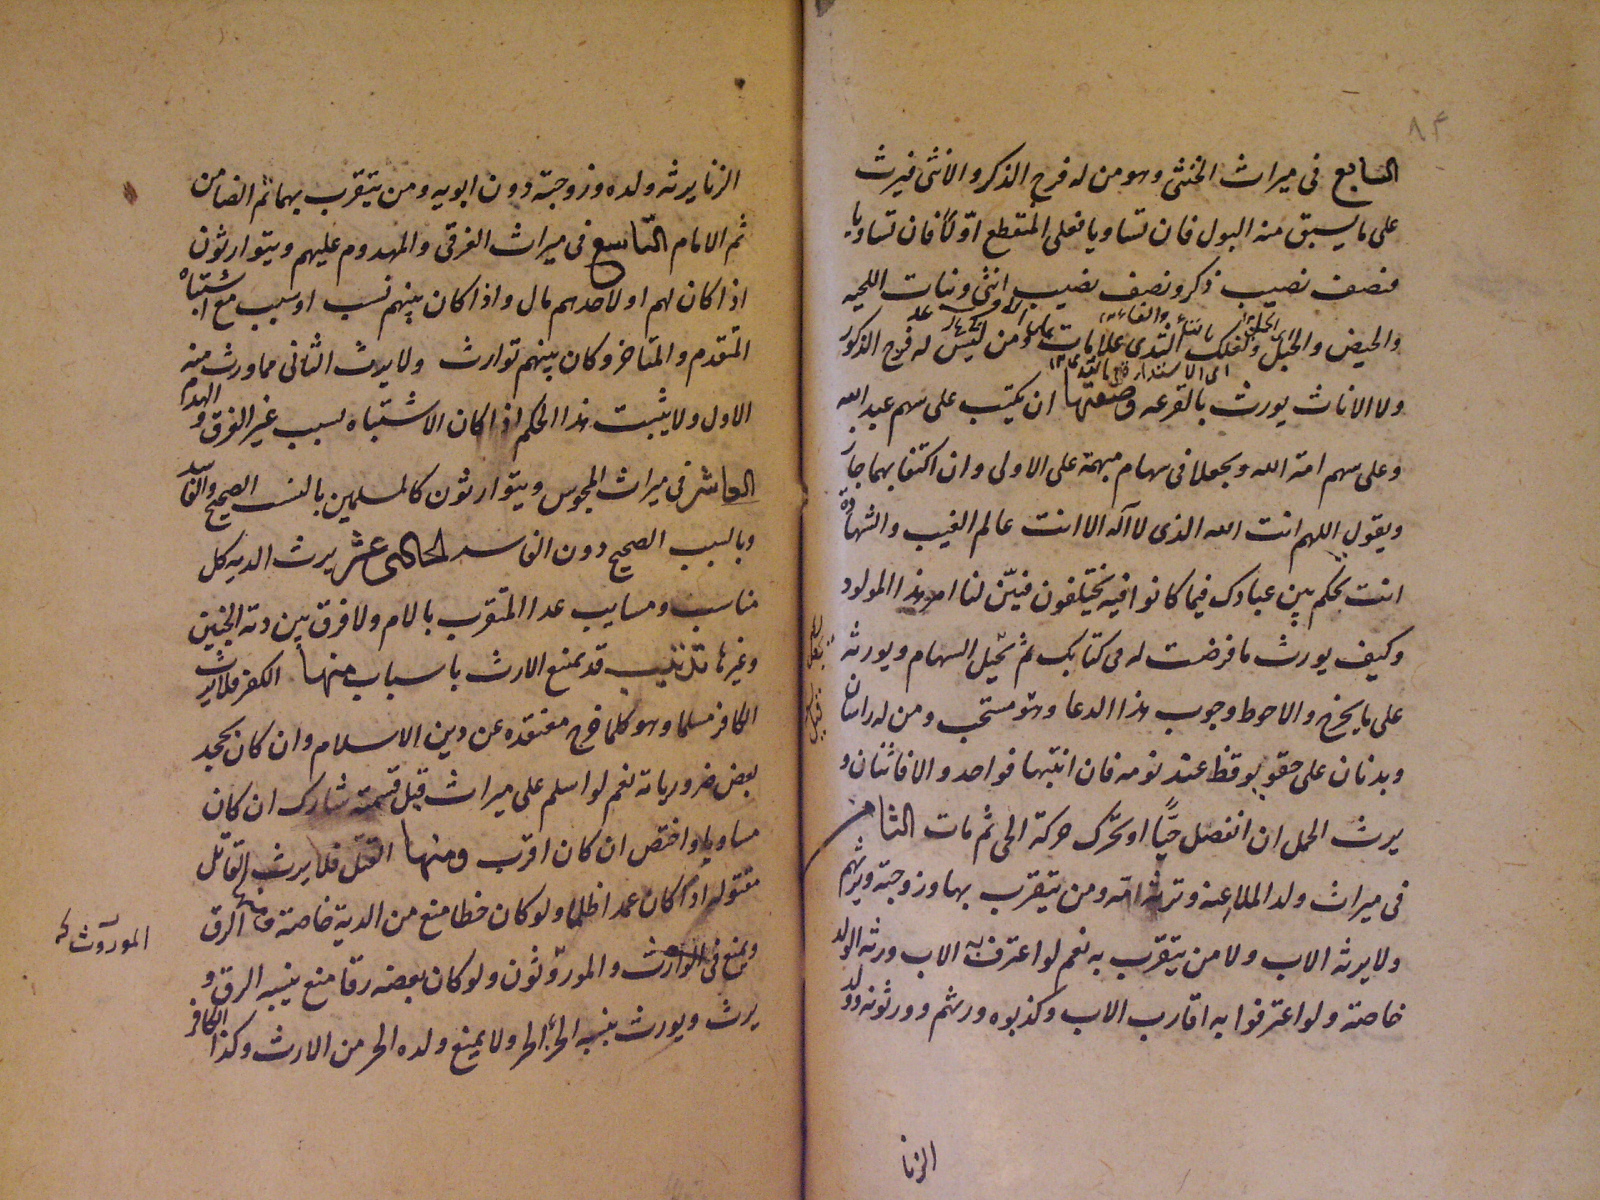 ٨٤
السابع فى ميراث الخنثى وهو من له فرج الذكر والانثى فيرث
على ما يسبق منه البول فان تساويا فعلى المنقطع اوّلا فان تساويا
فنصف نصيب ذكر ونصف نصيب انثى ونبات اللحيه
والحيض والحبل وتفلك الثدى علامات ومن ليس له فرج الذكور
ولا الاناث يورث بالقرعه وصفتها ان يكتب على سهم عبد الله
وعلى سهم امة الله ويجعلا فى سهام مبهمة على الاولى وان اكتفا بهما جاز
ويقول اللهم انت الله الذى لا آله الا انت عالم الغيب والشهادة
انت تحكم بين عبادك فيما كانوا فيه يختلفون فبيّن لنا امر هذا المولود
وكيف يورث ما فرضت له فى كتابك ثم تجيل السهام ويورثه
على ما يخرج والاحوط وجوب هذا الدعا وهو مستحب ومن له راسان
وبدنان على حقو يوقظ عند نومه فان انتبها فواحد والا فاثنان و
يرث الحمل ان انفصل حيًّا او تحرّك حركة الحى ثم مات الثامن
فى ميراث ولد الملاعنه وترثه امّه ومن يتقرب بها وزوجته ويرثهم
ولا يرثه الاب ولا من يتقرب به نعم لو اعترف به الاب ورثه الولد
خاصة ولو اعترفوا به اقارب الاب وكذبوه ورثهم وورثونه وولد
الزنا
الزنا يرثه ولده وزوجته دون ابويه ومن يتقرب بهما ثم الضامن
ثم الامام التاسع فى ميراث الغرقى والمهدوم عليهم ويتوارثون
اذا كان لهم او لاحدهم مال واذا كان بينهم نسب او سبب مع اشتباه
المتقدم والمتاخر وكان بينهم توارث ولا يرث الثانى مما ورث منه
الاول ولا يثبت هذا الحكم اذا كان الاشتباه لسبب غير الغرق والهدم
العاشر فى ميراث المجوس ويتوارثون كالمسلمين بالنسب الصحيح والفاسد
وبالسبب الصحيح دون الفاسد الحادى عشر يرث الديه كل
مناسب ومسابب عدا المتقرب بالام ولا فرق بين دية الجنين
وغيرها تذنيب قد يمنع الارث باسباب منها الكفر فلا يرث
الكافر مسلما وهو كلما خرج معتقده عن دين الاسلام وان كان بجحد
بعض ضرورياته نعم لو اسلم على ميراث قبل قسمته شارك ان كان
مساويا واختص ان كان اقرب ومنها القتل فلا يرث القاتل
مقتوله اذا كان عمدا ظلما ولو كان خطا منع من الدية خاصة ومنها الرق
ويمنع فى الوارث والموروثون ولو كان بعضه رقا منع بنسبة الرق و
يرث ويورث بنسبة الجزء الحر ولا يمنع ولده الحر من الارث وكذا الكافر
الموروث